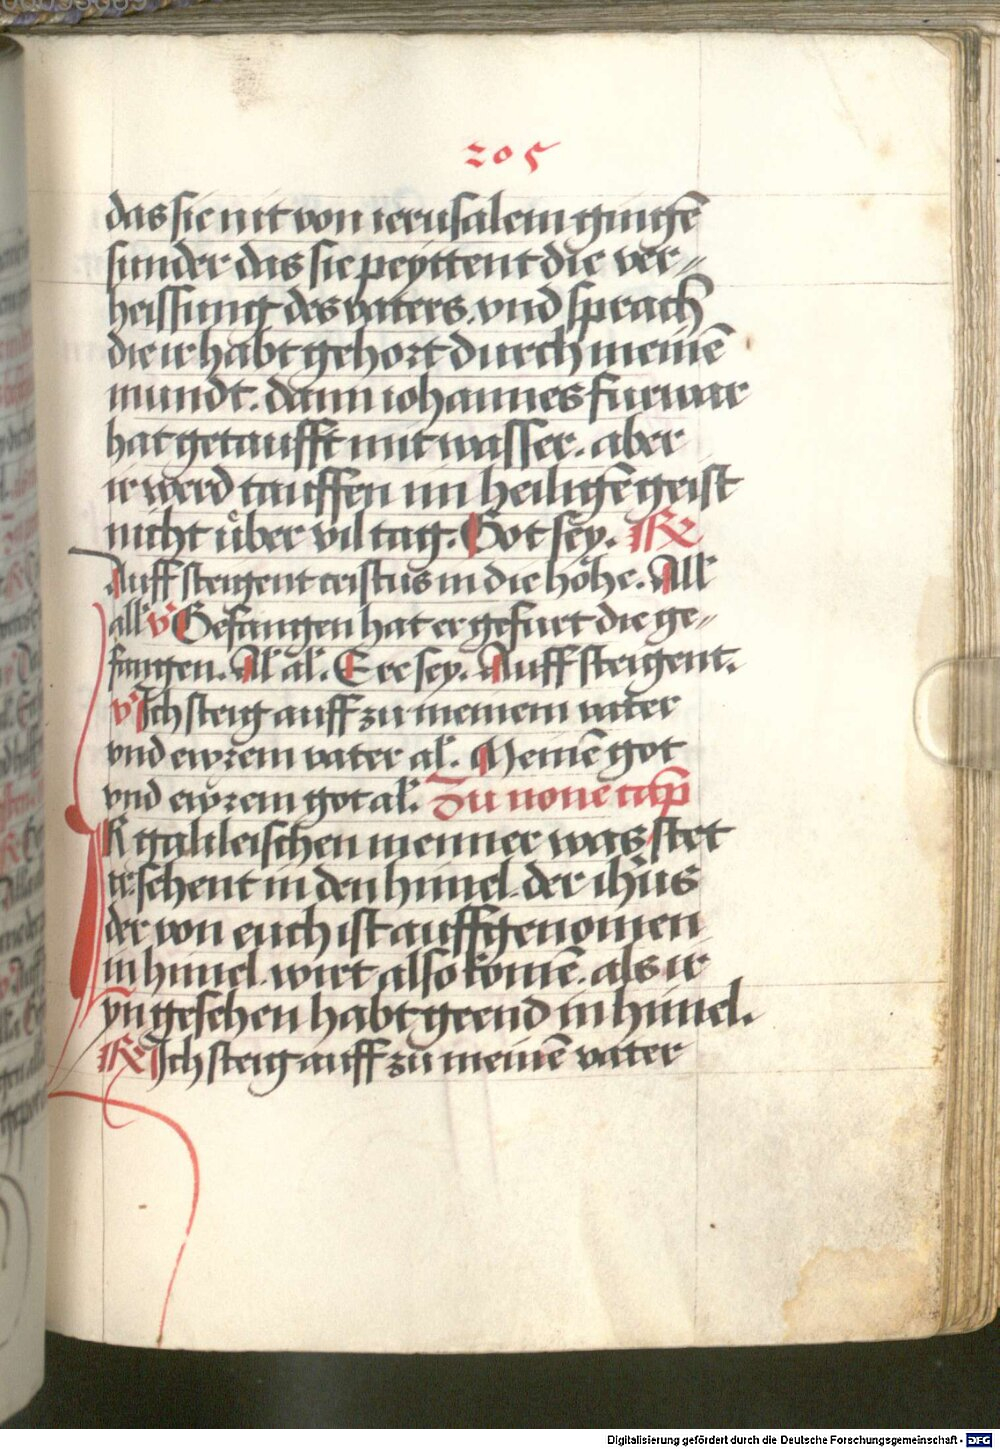 205
das sie nit von ierusalem gingē
sunder das sie peyttent die ver⸗
heissung des vaters. vnd sprach
die ir habt gehort durch meinē
mundt. dann iohannes furwar
hat getaufft mit wasser. aber
ir werd tauffen im heiligē geist
nicht über vil tag. Got sey. R
Auff steigent cristus in die höhe. All
all v Gefangen hat er gefurt die ge⸗
fangen. Al al. Ere sey. Auff steigent.
v Ich steig auff zu meinem vater
vnd ewrem vater al. Meinē got
vnd ewrem got al. Zu none cap
IR galileischen menner was stet
ir sehent in den himel. der ihūs
der von euch ist auffgenomen
in himel. wirt also komē. als ir
yn gesehen habt geend in himel.
R Ich steig auff zu meinē vater
Digitalisierung gefördert durch die Deutsche Forschungsgemeinschaft - DFG